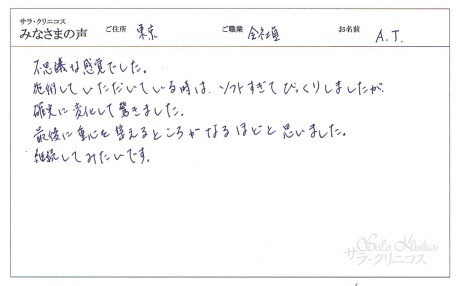 サラ・クリニコス
みなさまの声 ご住所 東京 ご職業 会社員 お名前 A.T.
不思議な感覚でした。
施術していただいている時は、ソフトすぎてびっくりしましたが、
確実に変化して驚きました。
最後に重心を整えるところがなるほどと思いました。
継続してみたいです。
Sala Klinikos
サラ・クリニコス